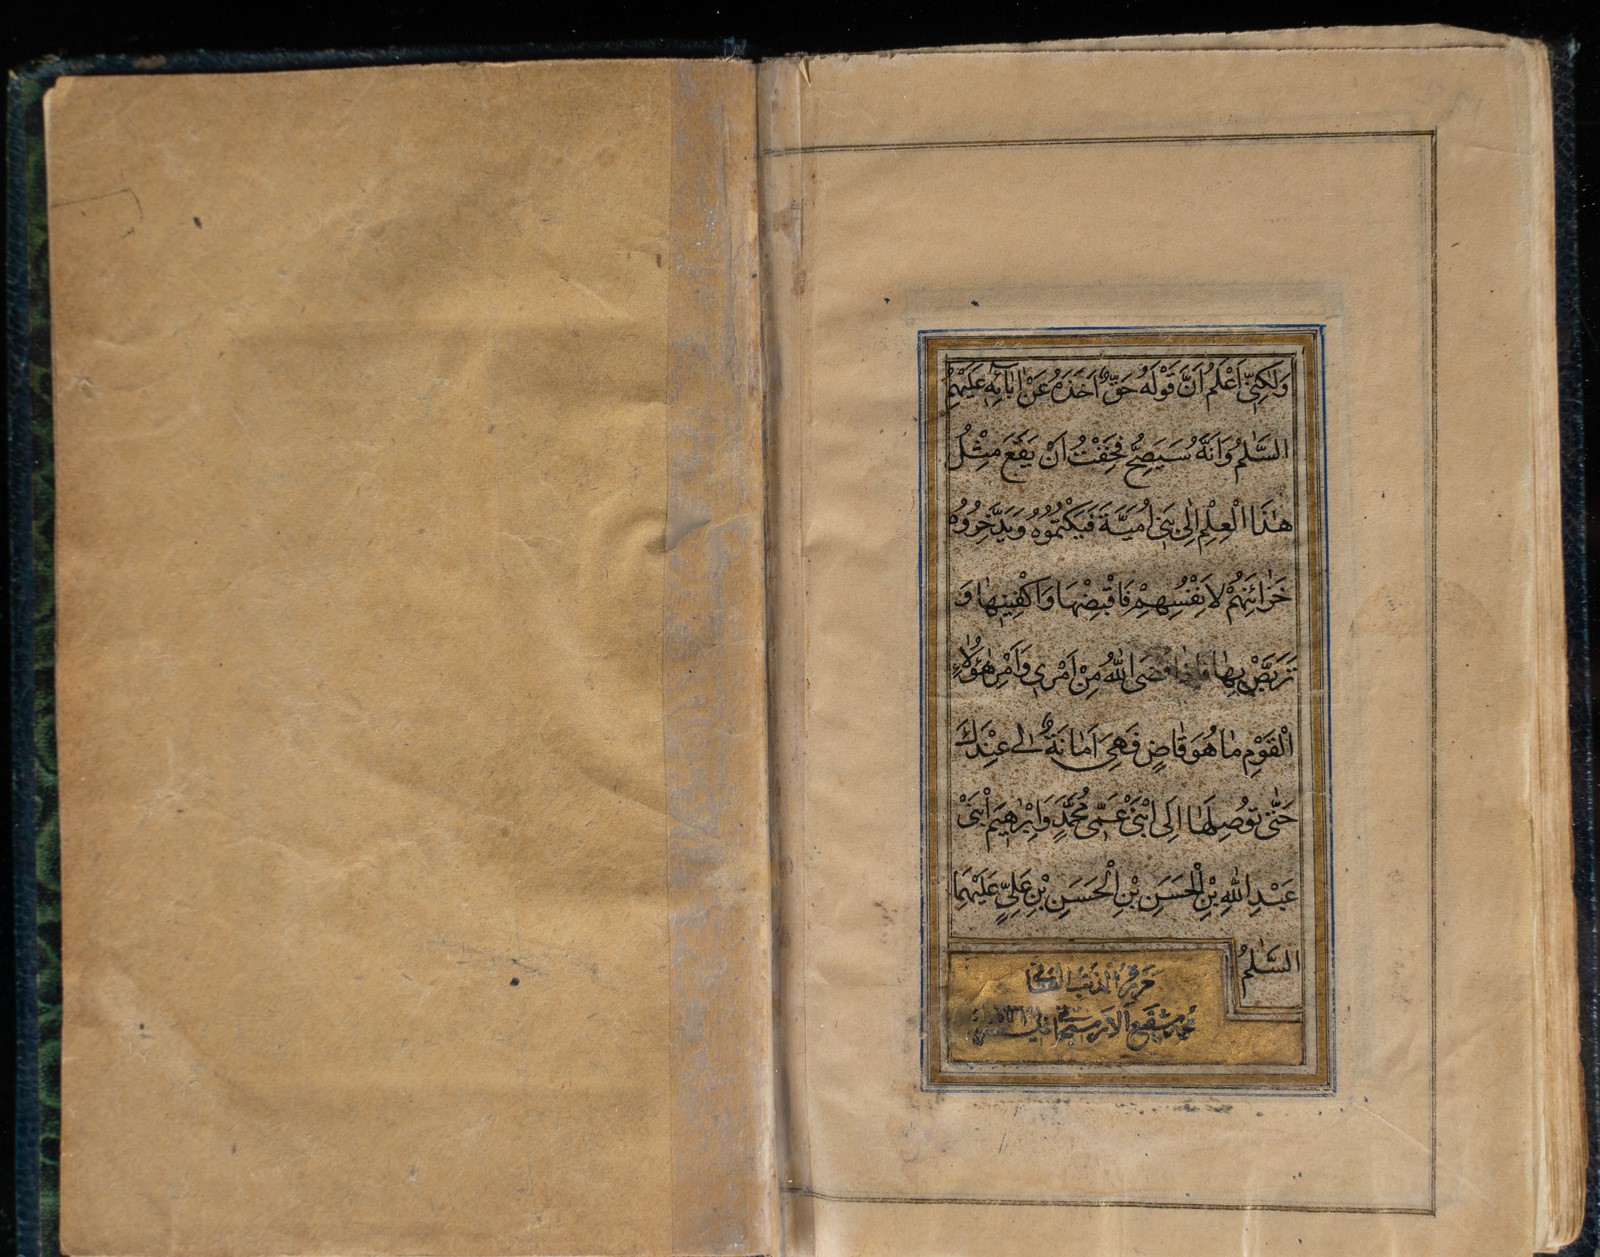 وَلٰكِنّي اَعْلَمُ اَنَّ قَوْلَهُ حَقٌّ اَخَذَهُ عَنْ اٰبَائِهِ عَلَيْهِمُ
السَّلٰمُ وَاَنَّهُ سَيَصِحُّ فَخِفْتُ اَنْ يَقَعَ مِثْلُ
هٰذَا الْعِلْمِ اِلٰى بَنى اُمَيَّةَ فَيَكْتُمُوُهُ وَيَدَّخِرُوُهُ
خَزٰائِنِهِمْ لِاَنْفُسِهِمْ فَاقْبِضْهَا وَاكْفِنِيهٰا وَ
تَرَبَّصْ بِهٰا فَاِذٰا قَضَى اللّٰهُ مِنْ اَمْرى وَاَمْرِ هٰؤُلٰاءِ
الْقَوْمِ مٰا هُوَ قٰاضٍ فَهِىَ اَمٰانَةٌ لى عِنْدَكَ
حَتّٰى تُوصِلَهٰا اِلَى ابْنَىْ عَمّى مُحَمَّدٍ وَاِبْرٰهيمَ ابْنَىْ
عَبْدِ اللّٰهِ بْنِ الْحَسَنِ بْنِ الْحَسَنِ بْنِ عَلِىٍّ عَلَيْهِمَا
السَّلٰمُ
حرره المذنب
محمد شفيع